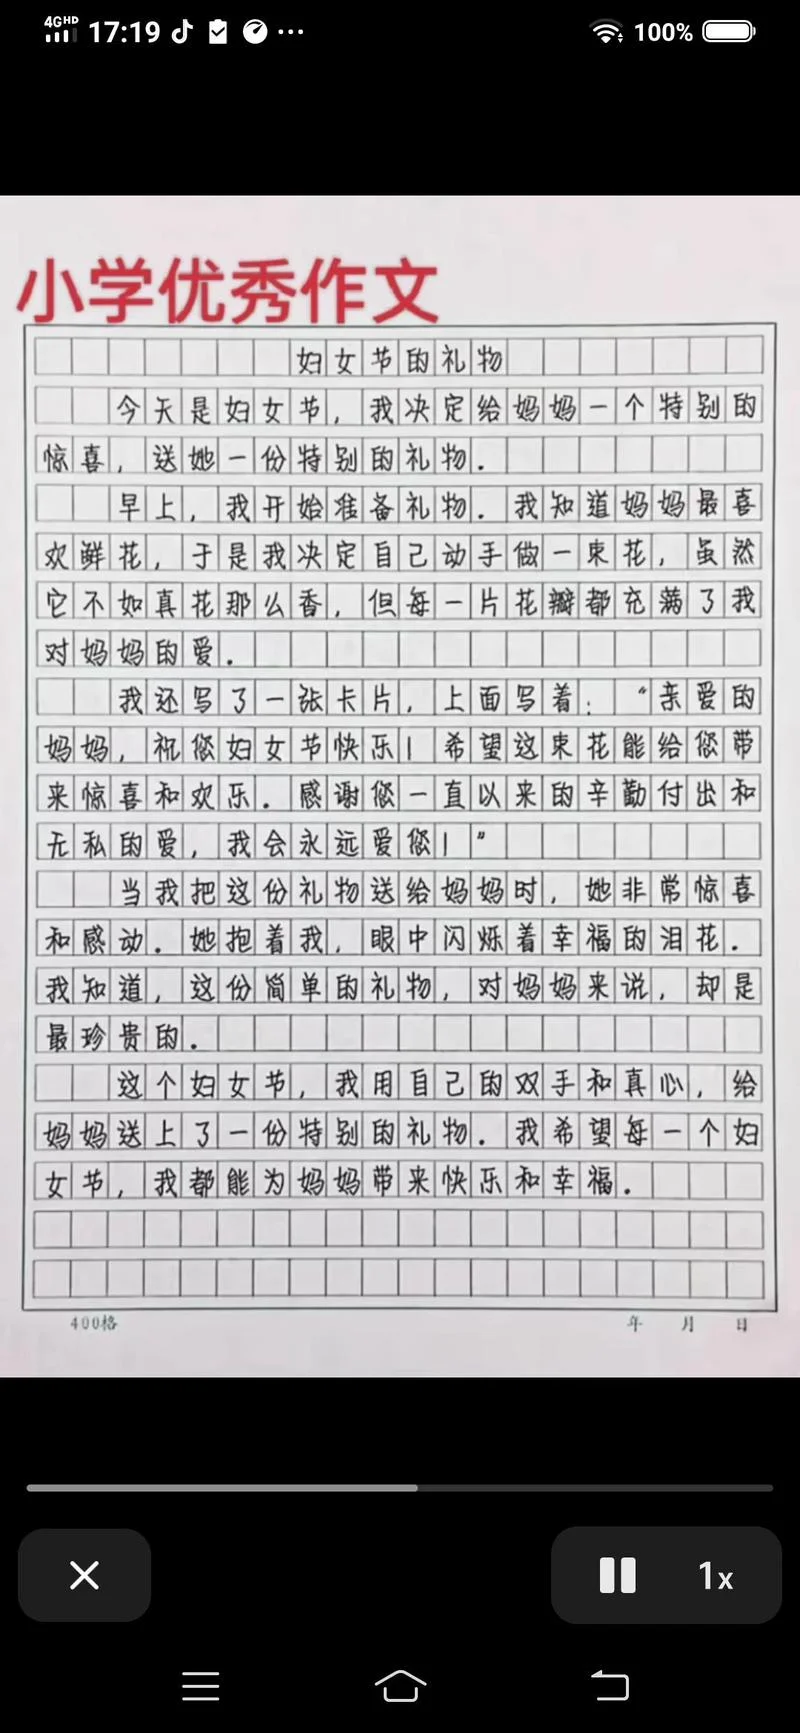 4GHD 17:19 100%
小学优秀作文
妇女节的礼物
今天是妇女节,我决定给妈妈一个特别的
惊喜,送她一份特别的礼物.
早上,我开始准备礼物.我知道妈妈最喜
欢鲜花,于是我决定自己动手做一束花,虽然
它不如真花那么香,但每一片花瓣都充满了我
对妈妈的爱.
我还写了一张卡片,上面写着:“亲爱的
妈妈,祝您妇女节快乐!希望这束花能给您带
来惊喜和欢乐.感谢您一直以来的辛勤付出和
无私的爱,我会永远爱您!”
当我把这份礼物送给妈妈时,她非常惊喜
和感动.她抱着我,眼中闪烁着幸福的泪花.
我知道,这份简单的礼物,对妈妈来说,却是
最珍贵的.
这个妇女节,我用自己的双手和真心,给
妈妈送上了一份特别的礼物.我希望每一个妇
女节,我都能为妈妈带来快乐和幸福.
400格 年 月 日
1x